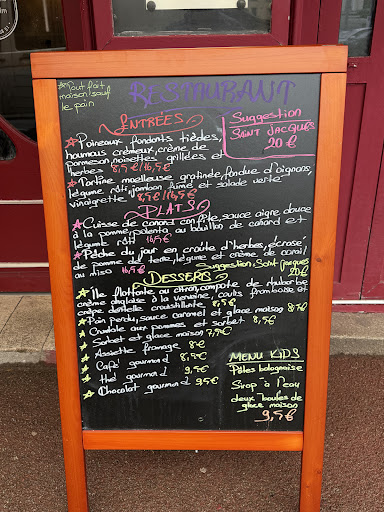 *Tout fait
maison sauf
le pain
RESTAURANT
ENTRÉES
Suggestion
SAINT JACQUES
20 €
*Poireaux fondants tièdes,
houmous crémeux, crème de
parmesan, noisettes grillées et
herbes 8,5 € / 16,5 €
*Tartine moelleuse gratinée, fondue d'oignons,
légume rôti, jambon fumé et salade verte
vinaigrette 8,5€ / 16,5€
PLATS
*Cuisse de canard confite, sauce aigre douce
à la pomme, polenta au bouillon de canard et
légume rôti 16,5€
*Pêche du jour en croûte d'herbes, écrasé
de pomme de terre, légume et crème de corail
au miso 16,5€ Suggestion Saint jacques
20€
DESSERTS
*Ile flottante au citron, compote de rhubarbe
crème anglaise à la verveine, coulis framboise et
crêpe dentelle croustillante 8,5€
*Pain perdu, sauce caramel et glace maison 8,5€
*Crumble aux pommes et sorbet 8,5€
*Sorbet et glace maison 7,5€
*Assiette fromage 8€
*Café gourmand 8,5€
*Thé gourmand 9,5€
*Chocolat gourmand 9,5€
MENU KIDS
Pâtes bolognaise
Sirop à l'eau
deux boules de
glace maison
9,5€